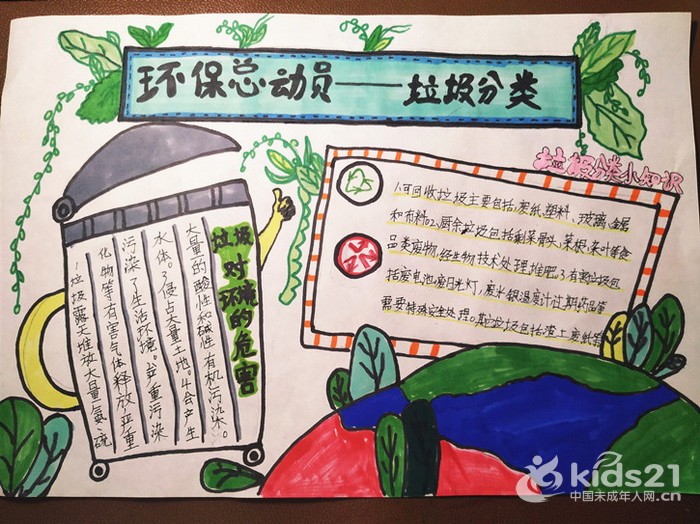 环保总动员——垃圾分类
垃圾分类小知识
垃圾对环境的危害
1垃圾露天堆放大量氨、硫
化物等有害气体释放严重
污染了生活环境。2严重污染
水体。3侵占大量土地。4会产生
大量的酸性和碱性有机污染。
1.可回收垃圾主要包括:废纸、塑料、玻璃、金属
和布料2.厨余垃圾包括剩菜骨头、菜根、菜叶等食
品类废物,经生物技术处理堆肥。3.有害垃圾包
括废电池、废日光灯、废水银温度计、过期药品等
需要特殊安全处理。其它垃圾包括渣土、废纸等
kids21
中国未成年人网.cn